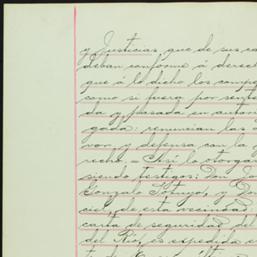 y Justicias que de sus ca
deban conforme á derech
que á lo dicho los compe
como si fuera por sente
da y pasada en autori
gada: renuncian las
vor y defensa con la
recho. = Así lo otorga
siendo testigos: Don
Gonzalo y Don
ciel, de esta vecindad
carta de seguridad del
del Río, es expedida e